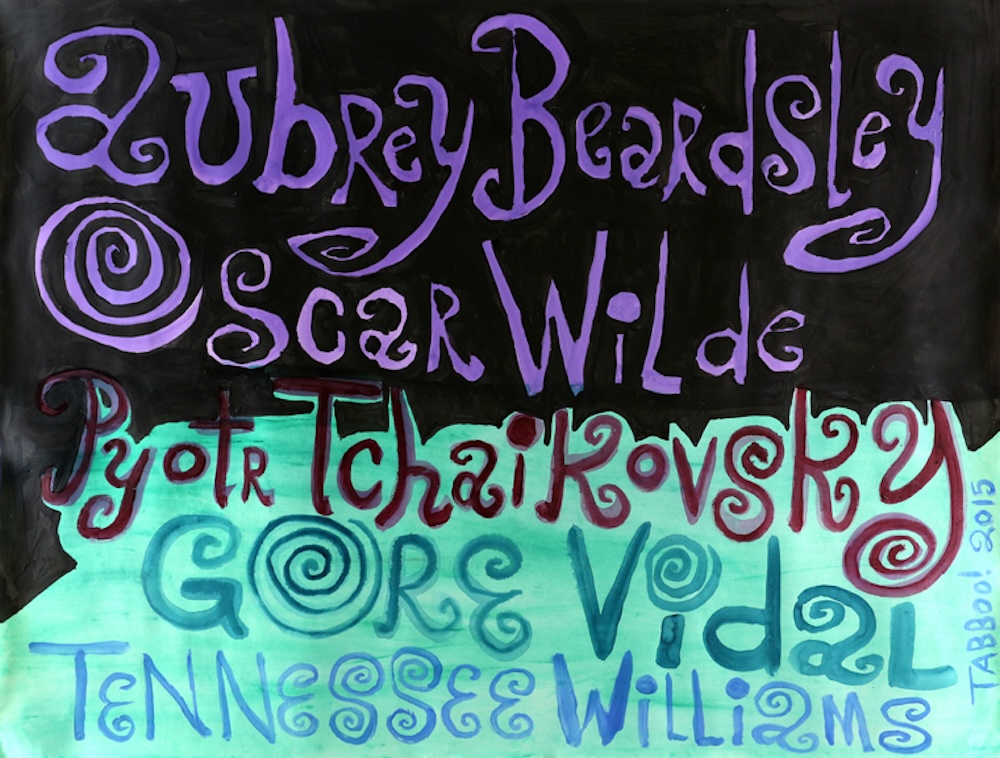 Aubrey Beardsley
Oscar Wilde
Pyotr Tchaikovsky
GORE Vidal
TENNESSEE Williams
TABBOO! 2015